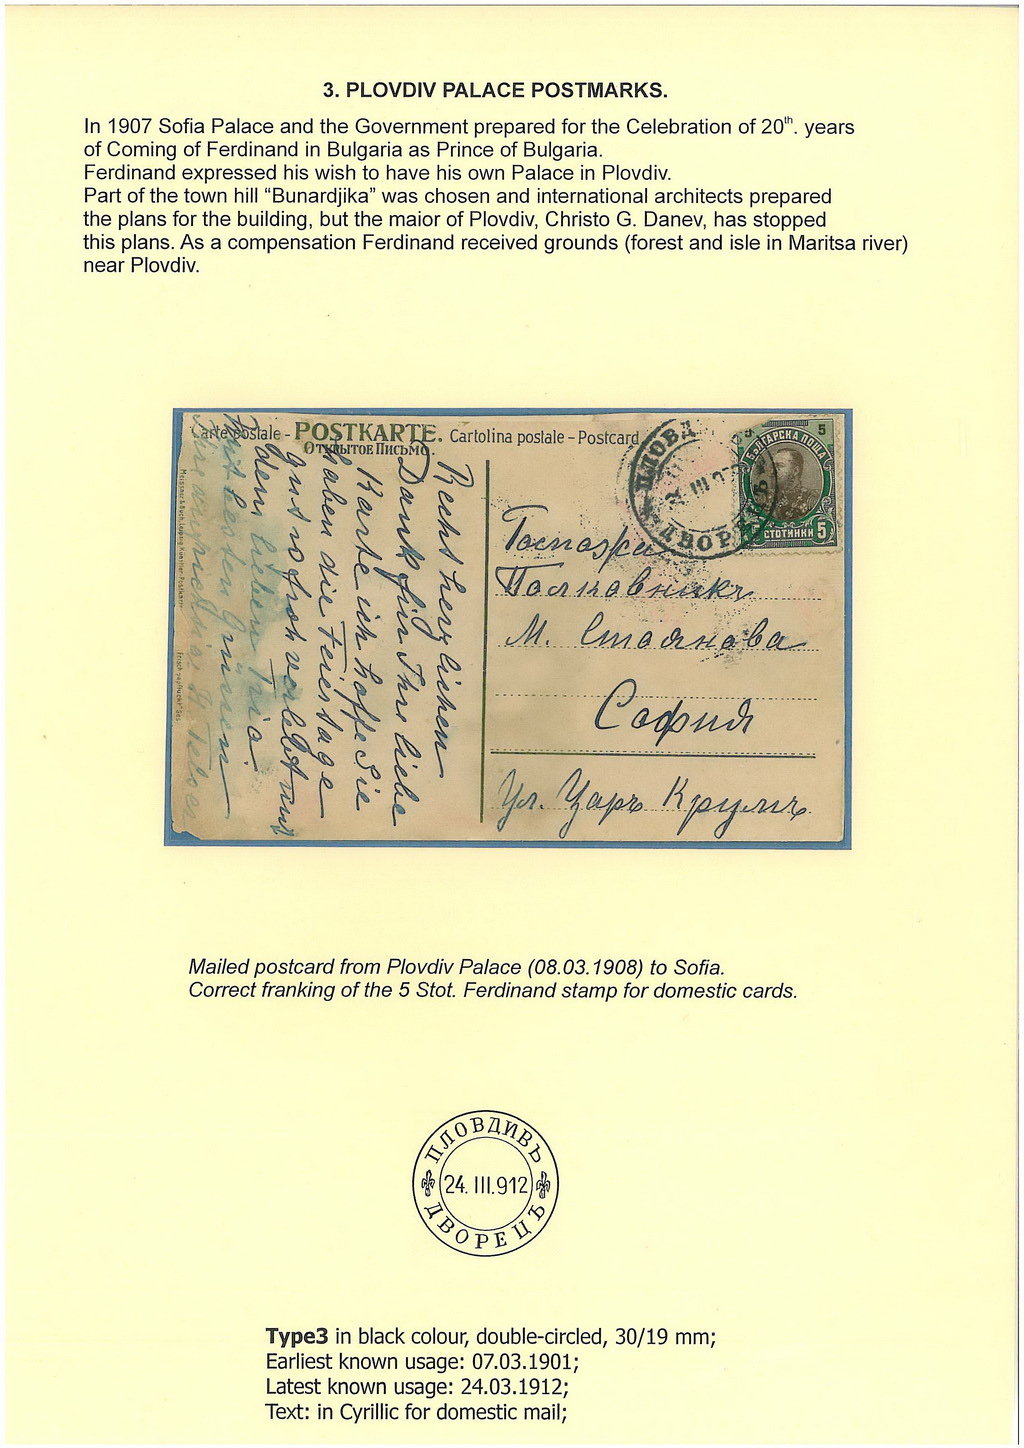 3. PLOVDIV PALACE POSTMARKS.
In 1907 Sofia Palace and the Government prepared for the Celebration of 20th. years
of Coming of Ferdinand in Bulgaria as Prince of Bulgaria.
Ferdinand expressed his wish to have his own Palace in Plovdiv.
Part of the town hill “Bunardjika” was chosen and international architects prepared
the plans for the building, but the maior of Plovdiv, Christo G. Danev, has stopped
this plans. As a compensation Ferdinand received grounds (forest and isle in Maritsa river)
near Plovdiv.
Carte postale - POSTKARTE. Cartolina postale - Postcard
Открытое Письмо.
Recht herzlichen
Dank für Ihre liebe
Karte ich hoffe Sie
haben die Feiertage
gut u froh verlebt mit
dem lieben
Mit besten Grüssen
Ihre
ПЛОВД
ДВОРЕЦЪ
БЪЛГАРСКА ПОЩА
5
СТОТИНКИ 5
Госпожа
Полковникъ
М. Стоянова
София
Ул. Царь Крумъ
Mailed postcard from Plovdiv Palace (08.03.1908) to Sofia.
Correct franking of the 5 Stot. Ferdinand stamp for domestic cards.
ПЛОВДИВЪ
24. III.912
ДВОРЕЦЪ
Type3 in black colour, double-circled, 30/19 mm;
Earliest known usage: 07.03.1901;
Latest known usage: 24.03.1912;
Text: in Cyrillic for domestic mail;